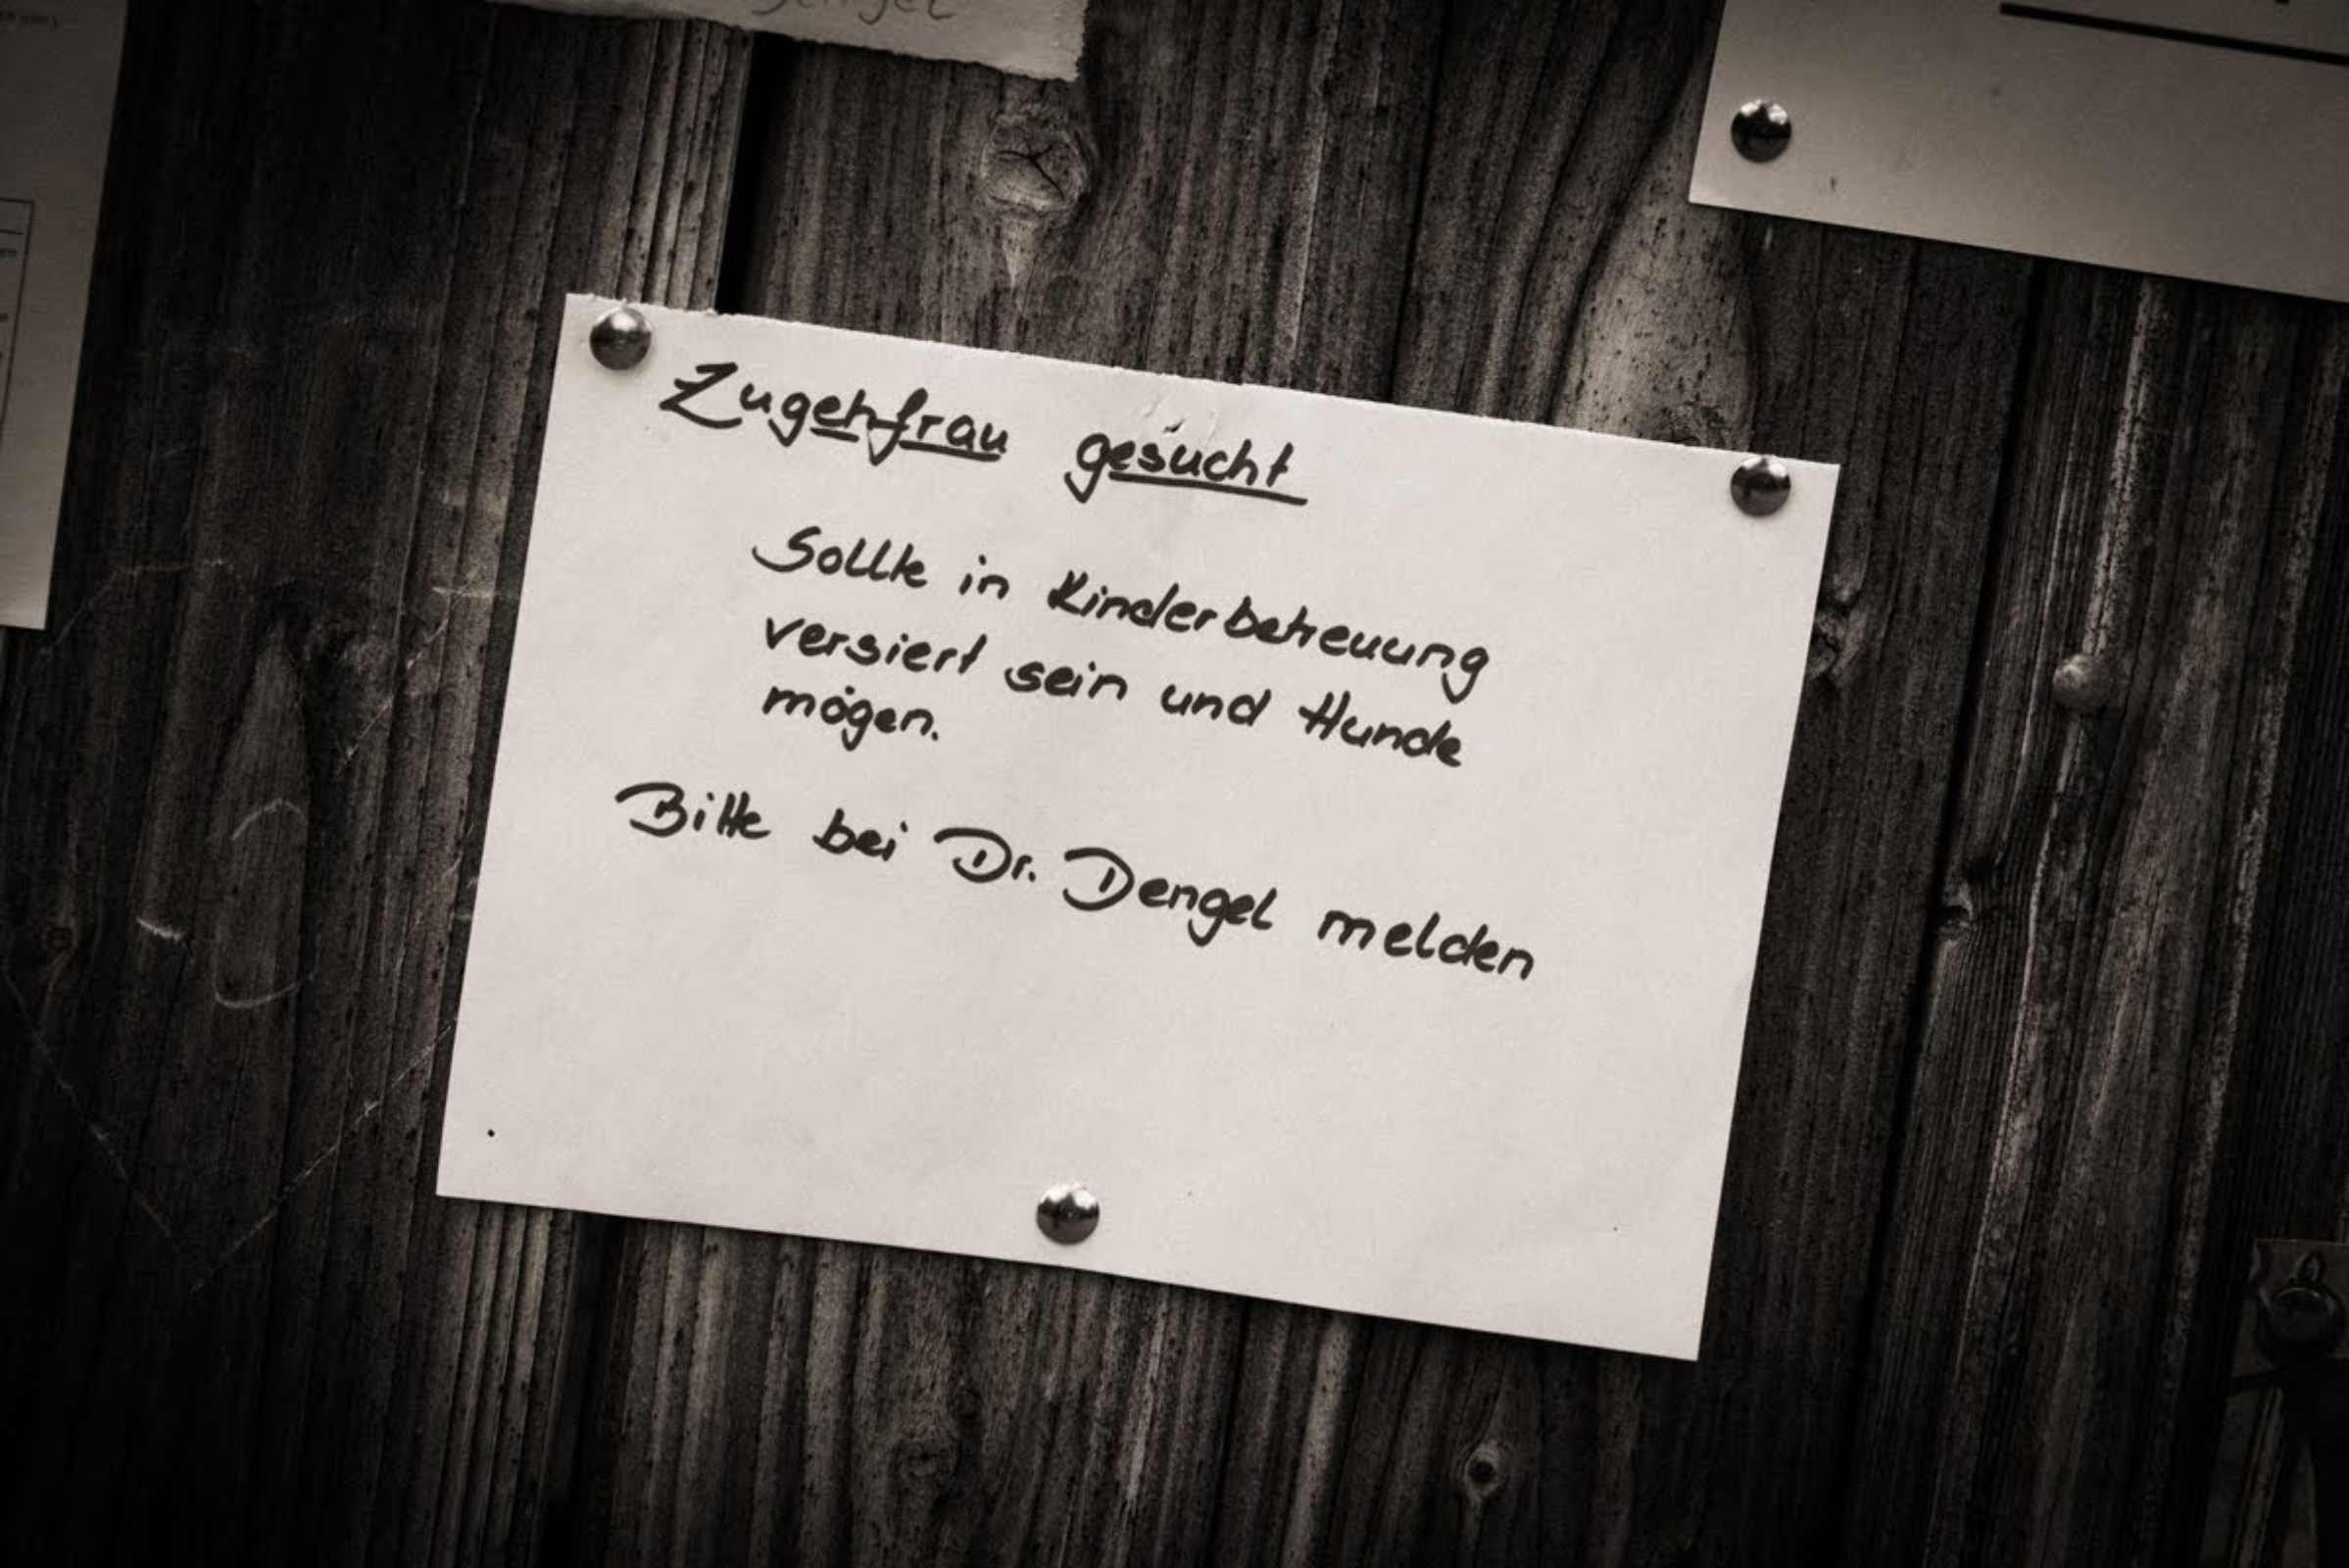 Zugehfrau gesucht
Sollte in Kinderbetreuung
versiert sein und Hunde
mögen.
Bitte bei Dr. Dengel melden